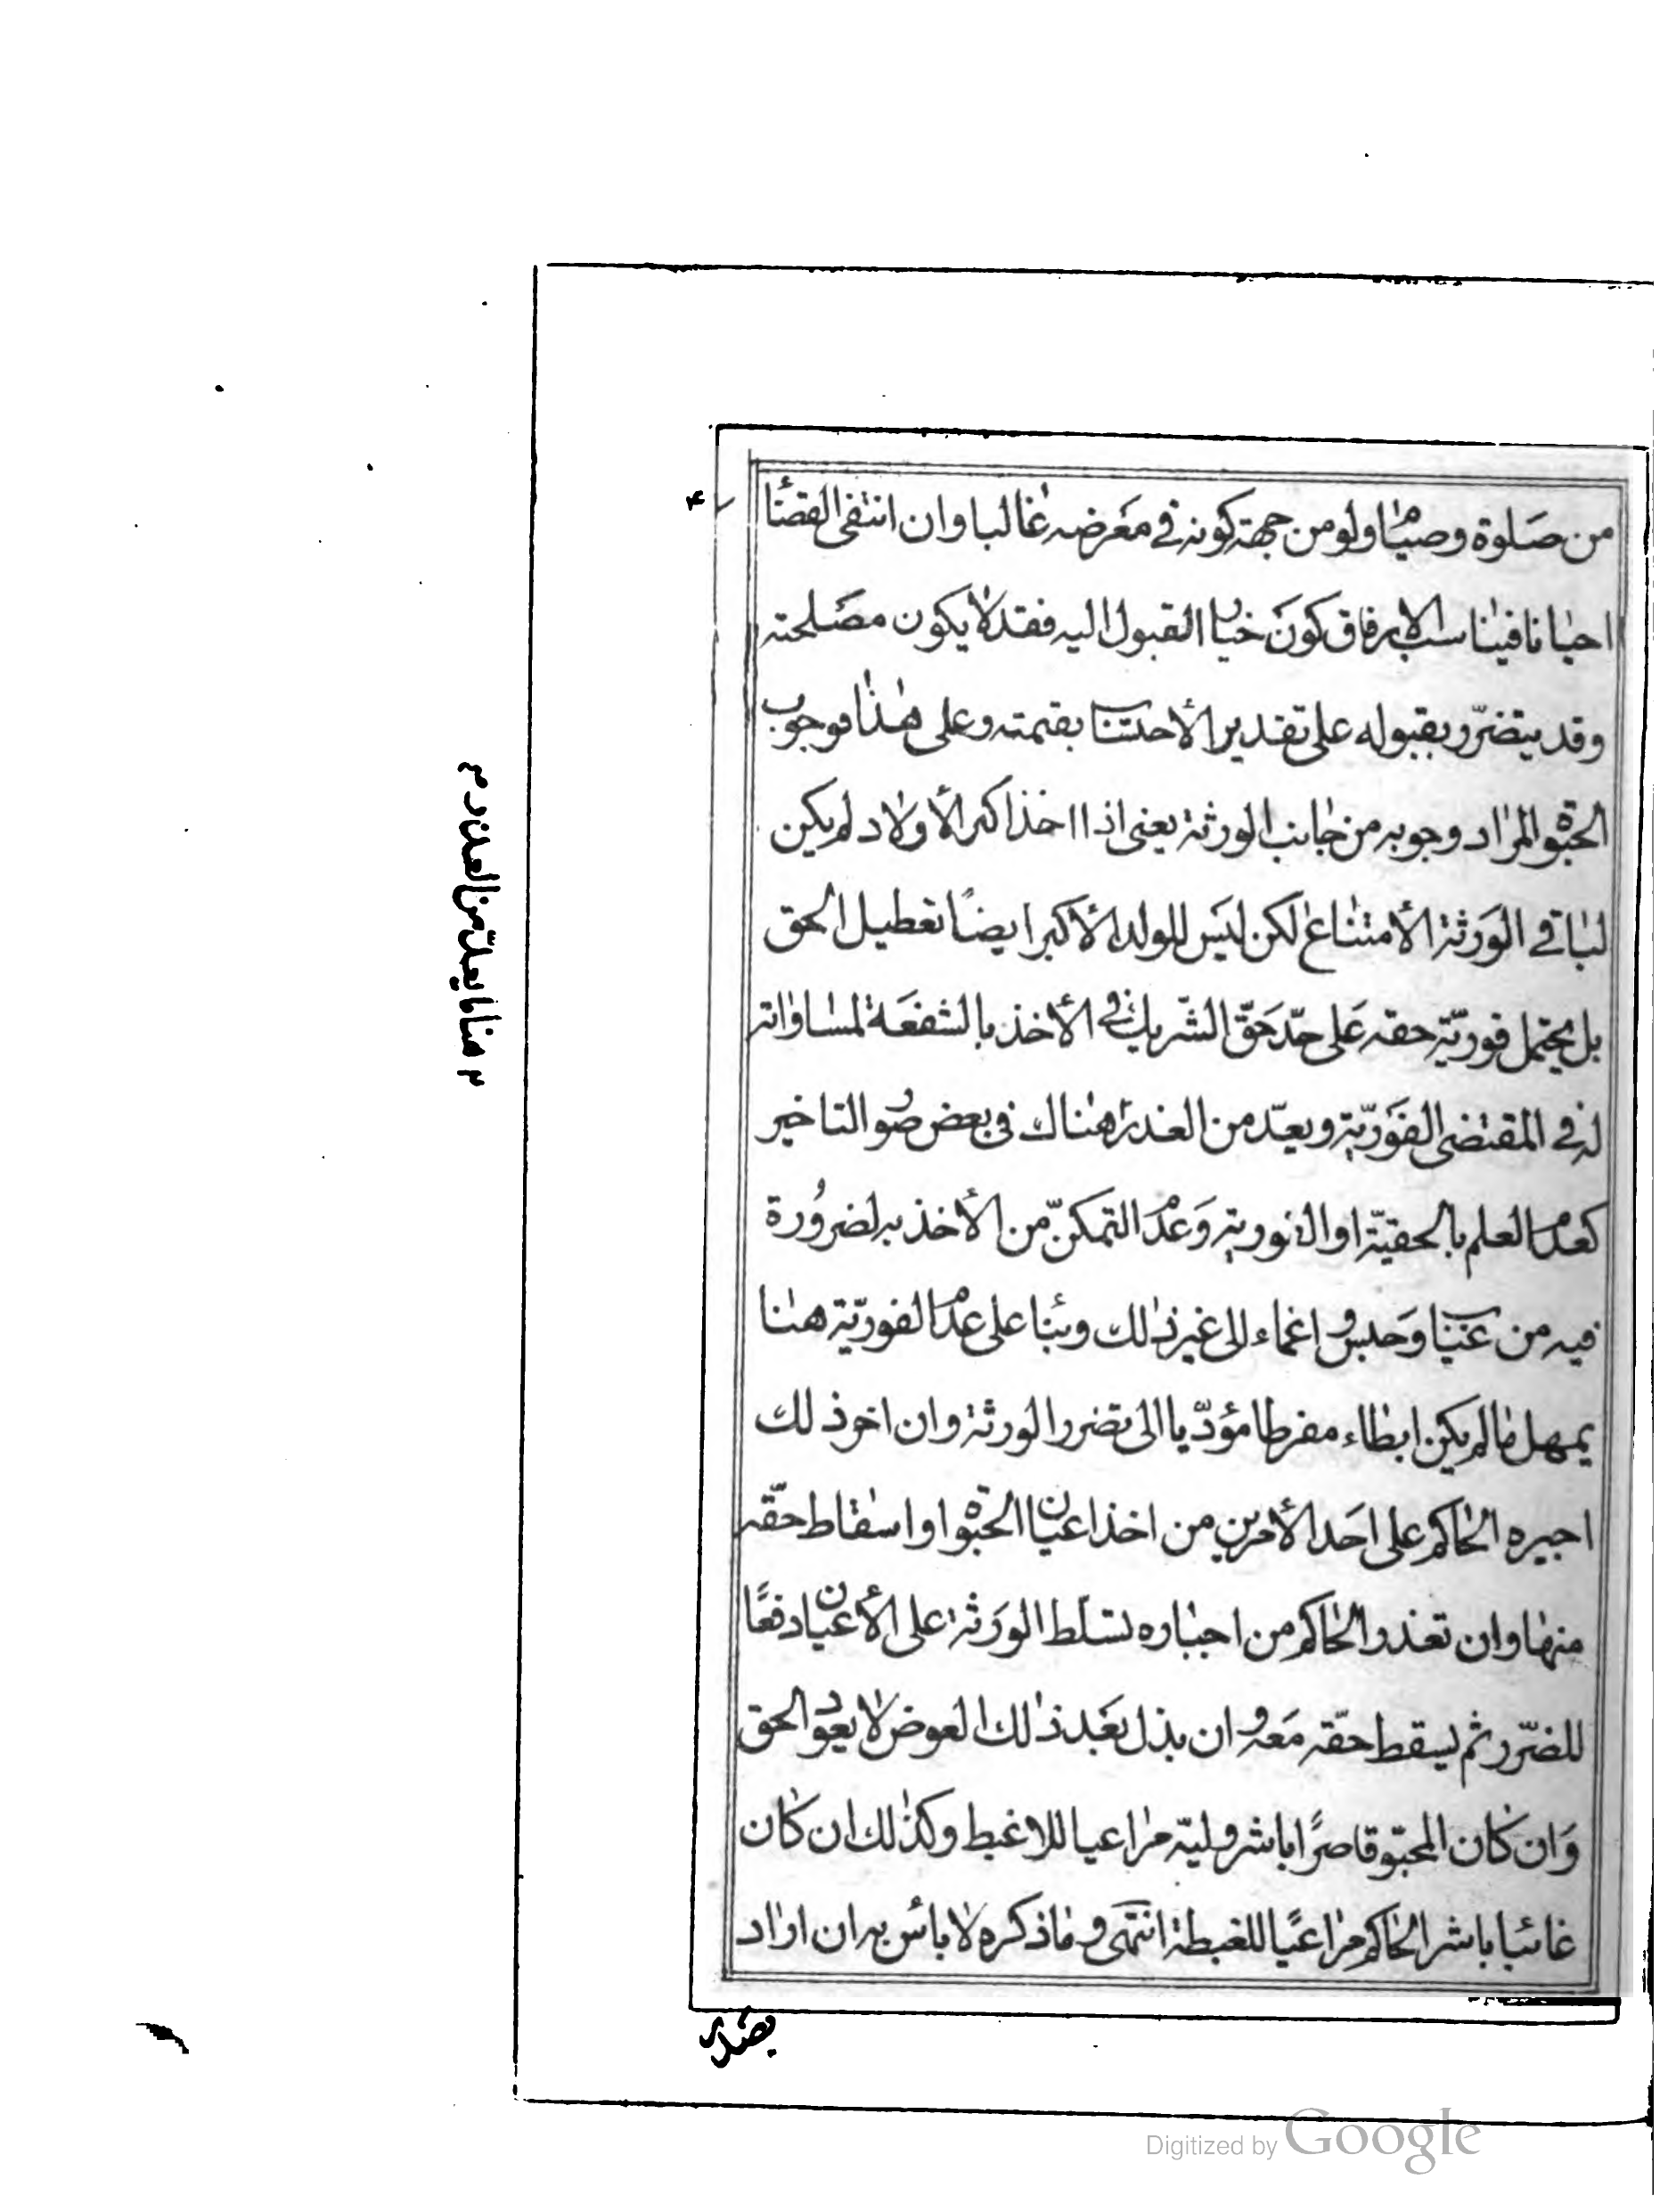 من صلوة وصيام ولو من جهة كونه في معرضه غالبا وان انتفى القضاء
احيانا فيناسب الارفاق كون خيار القبول اليه فقد لا يكون مصلحته
وقد يتضرر بقبوله على تقدير الأحتساب بقيمته وعلى هذا فوجوب
الحبوة المراد وجوبه من جانب الورثة يعنى اذا اخذ اكبر الأولاد لم يكن
لباقي الورثة الأمتناع لكن ليس للولد الأكبر ايضا تعطيل الحق
بل يحتمل فوريّة حقه على حدّ حقّ الشريك في الأخذ بالشفعة لمساواته
له في المقتضى الفوريّة ويعدّ من العذر هناك في بعض صور التاخير
كعدم العلم بالحقيّة او الفورية وعدم التمكن من الأخذ به لضرورة
فيه من غياب وحبس واغماء الى غير ذلك وبناء على عدم الفوريّة هنا
يمهل ما لم يكن ابطاء مفرطا مؤدّيا الى تضرر الورثة وان اخر ذلك
اجبره الحاكم على احد الأمرين من اخذ اعيان الحبوة او اسقاط حقّه
منها وان تعذر الحاكم من اجباره تسلّط الورثة على الأعيان دفعًا
للضرر ثم يسقط حقّه معه وان بذل بعد ذلك العوض لا يعود الحق
وان كان المحبوّ قاصرًا باشر وليّه مراعيا للاغبط وكذلك ان كان
غائبا باشر الحاكم مراعيًا للغبطة انتهى وما ذكره لا باس به ان اراد
بصدر
هنا ما يعدّ من العذر
Digitized by Google